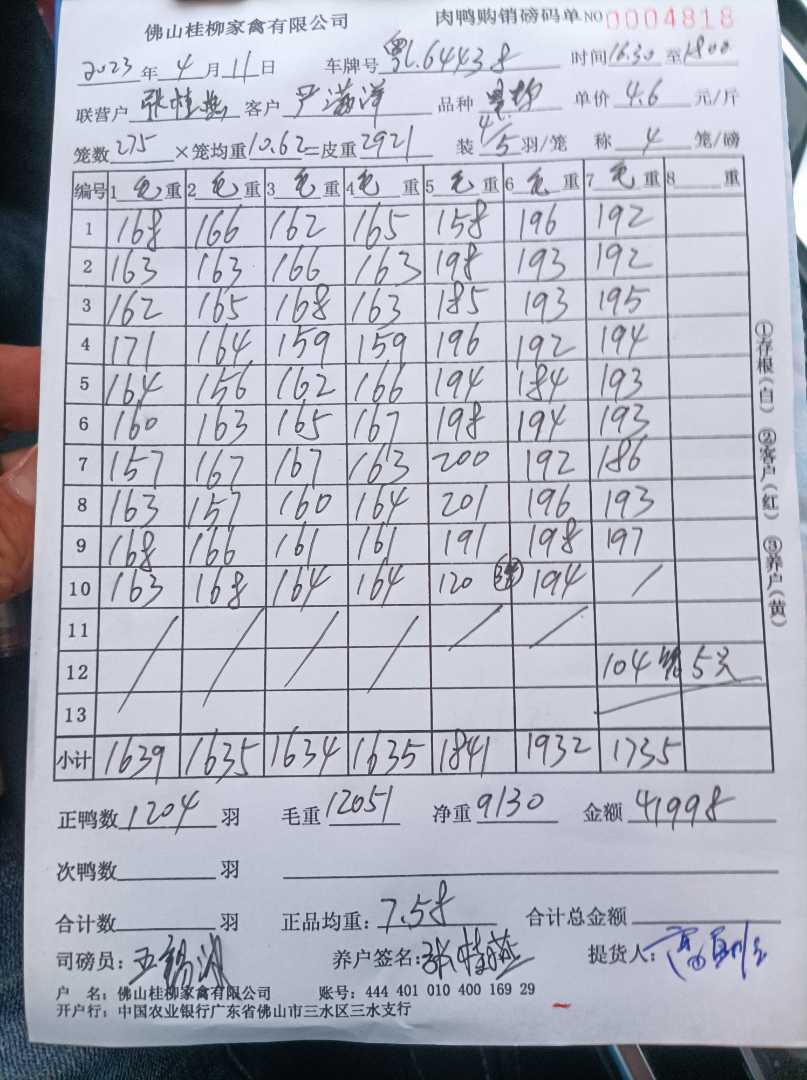 佛山桂柳家禽有限公司 肉鸭购销磅码单 NO 0004818
2023 年 4 月 11 日 车牌号 粤L64438 时间 16:30 至 1800
联营户 张桂燕 客户 严满洋 品种 单价 4.6 元/斤
笼数 275 ×笼均重 10.62 =皮重 2921 装 4/5 羽/笼 称 4 笼/磅
编号 1 毛 重 2 毛 重 3 毛 重 4 毛 重 5 毛 重 6 毛 重 7 毛 重 8 重
1 168 166 162 165 158 196 192
2 163 163 166 163 198 193 192
3 162 165 168 163 185 193 195
4 171 164 159 159 196 192 194
5 164 156 162 166 194 184 193
6 160 163 165 167 198 194 193
7 157 167 167 163 200 192 186
8 163 157 160 164 201 196 193
9 168 166 161 161 191 198 197
10 163 168 164 164 120 194
11
12 104 5只
13
小计 1639 1635 1634 1635 1841 1932 1735
正鸭数 1204 羽 毛重 12051 净重 9130 金额 41998
次鸭数 羽
合计数 羽 正品均重: 7.58 合计总金额
司磅员: 养户签名: 张桂燕 提货人:
户 名: 佛山桂柳家禽有限公司 账号: 444 401 010 400 169 29
开户行: 中国农业银行广东省佛山市三水区三水支行
①存根(白) ②客户(红) ③养户(黄)